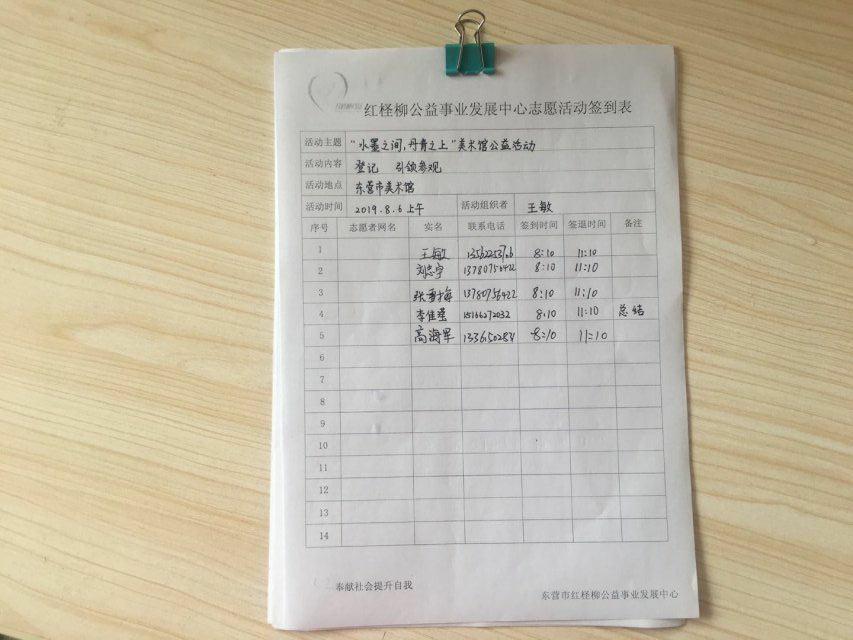 红柽柳公益事业发展中心志愿活动签到表
活动主题 “水墨之间,丹青之上”美术馆公益活动
活动内容 登记 引领参观
活动地点 东营市美术馆
活动时间 2019.8.6 上午 活动组织者 王敏
序号 志愿者网名 实名 联系电话 签到时间 签退时间 备注
1 王敏 8:10 11:10
2 刘志宇 13780756422 8:10 11:10
3 13780756422 8:10 11:10
4 李佳瑾 15166272032 8:10 11:10 总结
5 高海军 8:10 11:10
6
7
8
9
10
11
12
13
14
奉献社会提升自我
东营市红柽柳公益事业发展中心